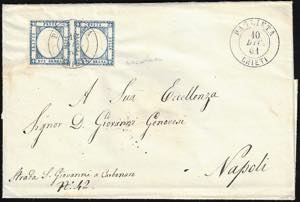 PAGLIETA
10
DIC.
61
CHIETI
A Sua Eccellenza
Signor D. Giovanni Genovesi
Napoli
Strada S. Giovanni a Carbonara
N. 42